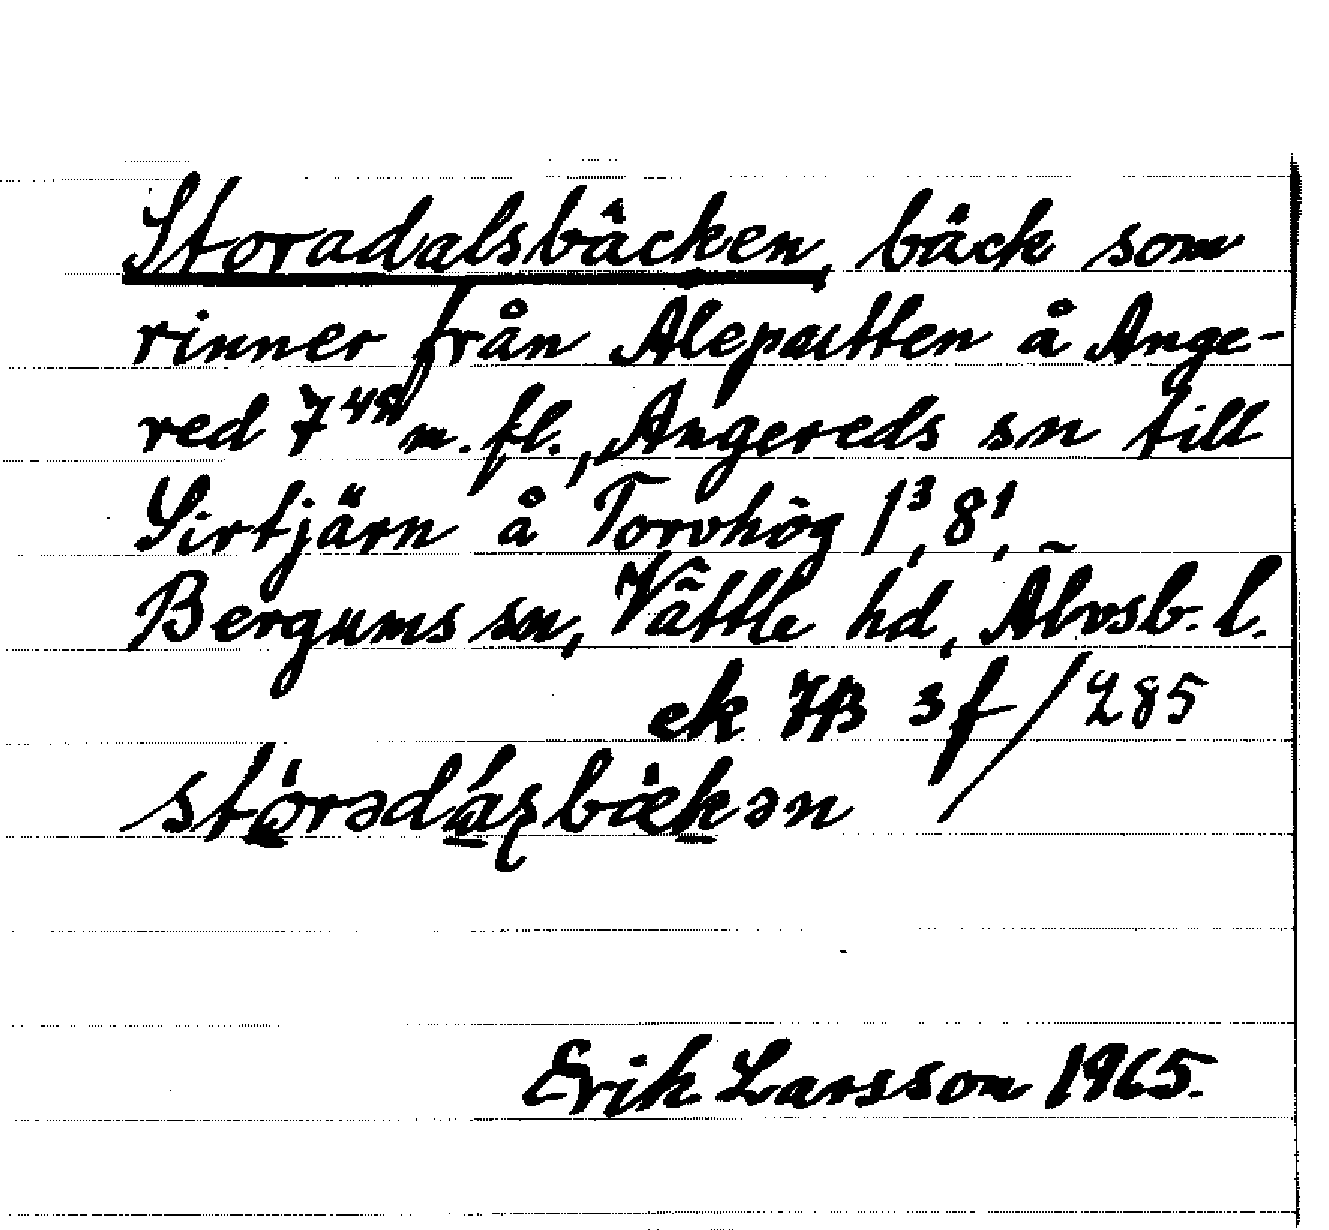 Storadalsbäcken, bäck som
rinner från Alepatten å Ange-
red 7⁴⁸ m. fl., Angereds sn till
Sirtjärn å Torvhög 1³, 8¹,
Bergums sn, Vättle hd, Älvsb. l.
ek 7B 3f/285
Erik Larsson 1965.